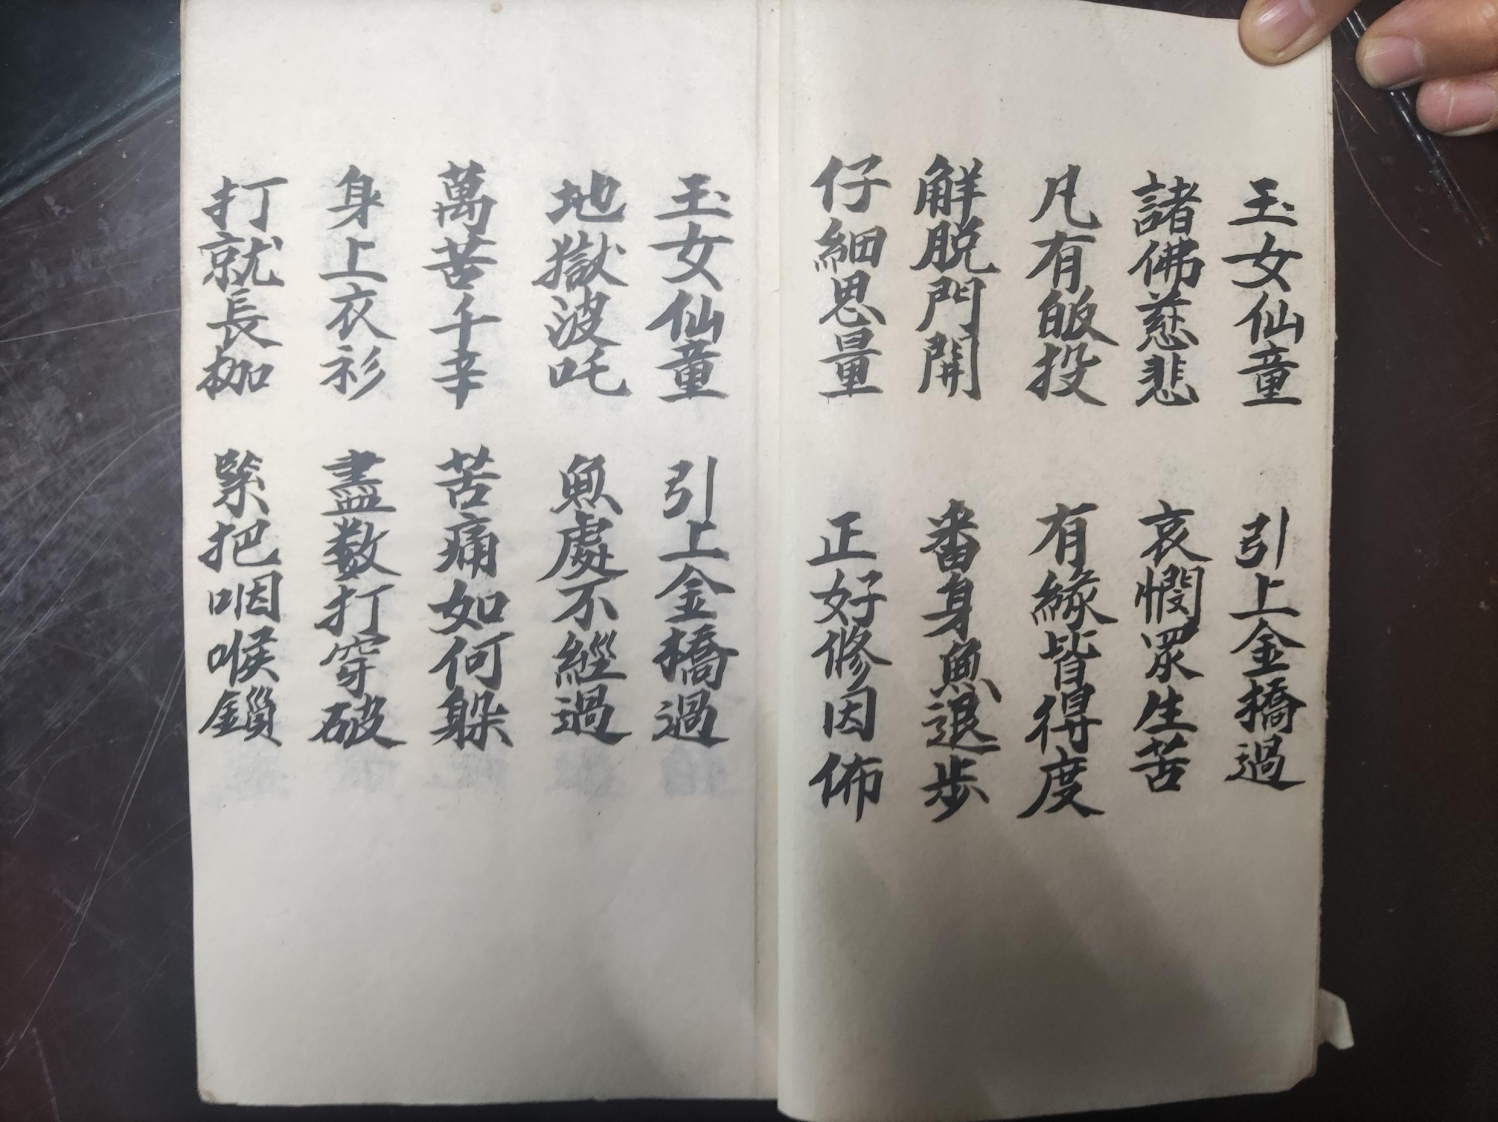 玉女仙童 引上金橋過
諸佛慈悲 哀憫眾生苦
凡有皈投 有緣皆得度
解脱門開 番身魚退步
仔細思量 正好修因佈
玉女仙童 引上金橋過
地獄波吒 魚處不經過
萬苦千辛 苦痛如何躲
身上衣衫 盡数打穿破
打就長枷 緊把咽喉鎖